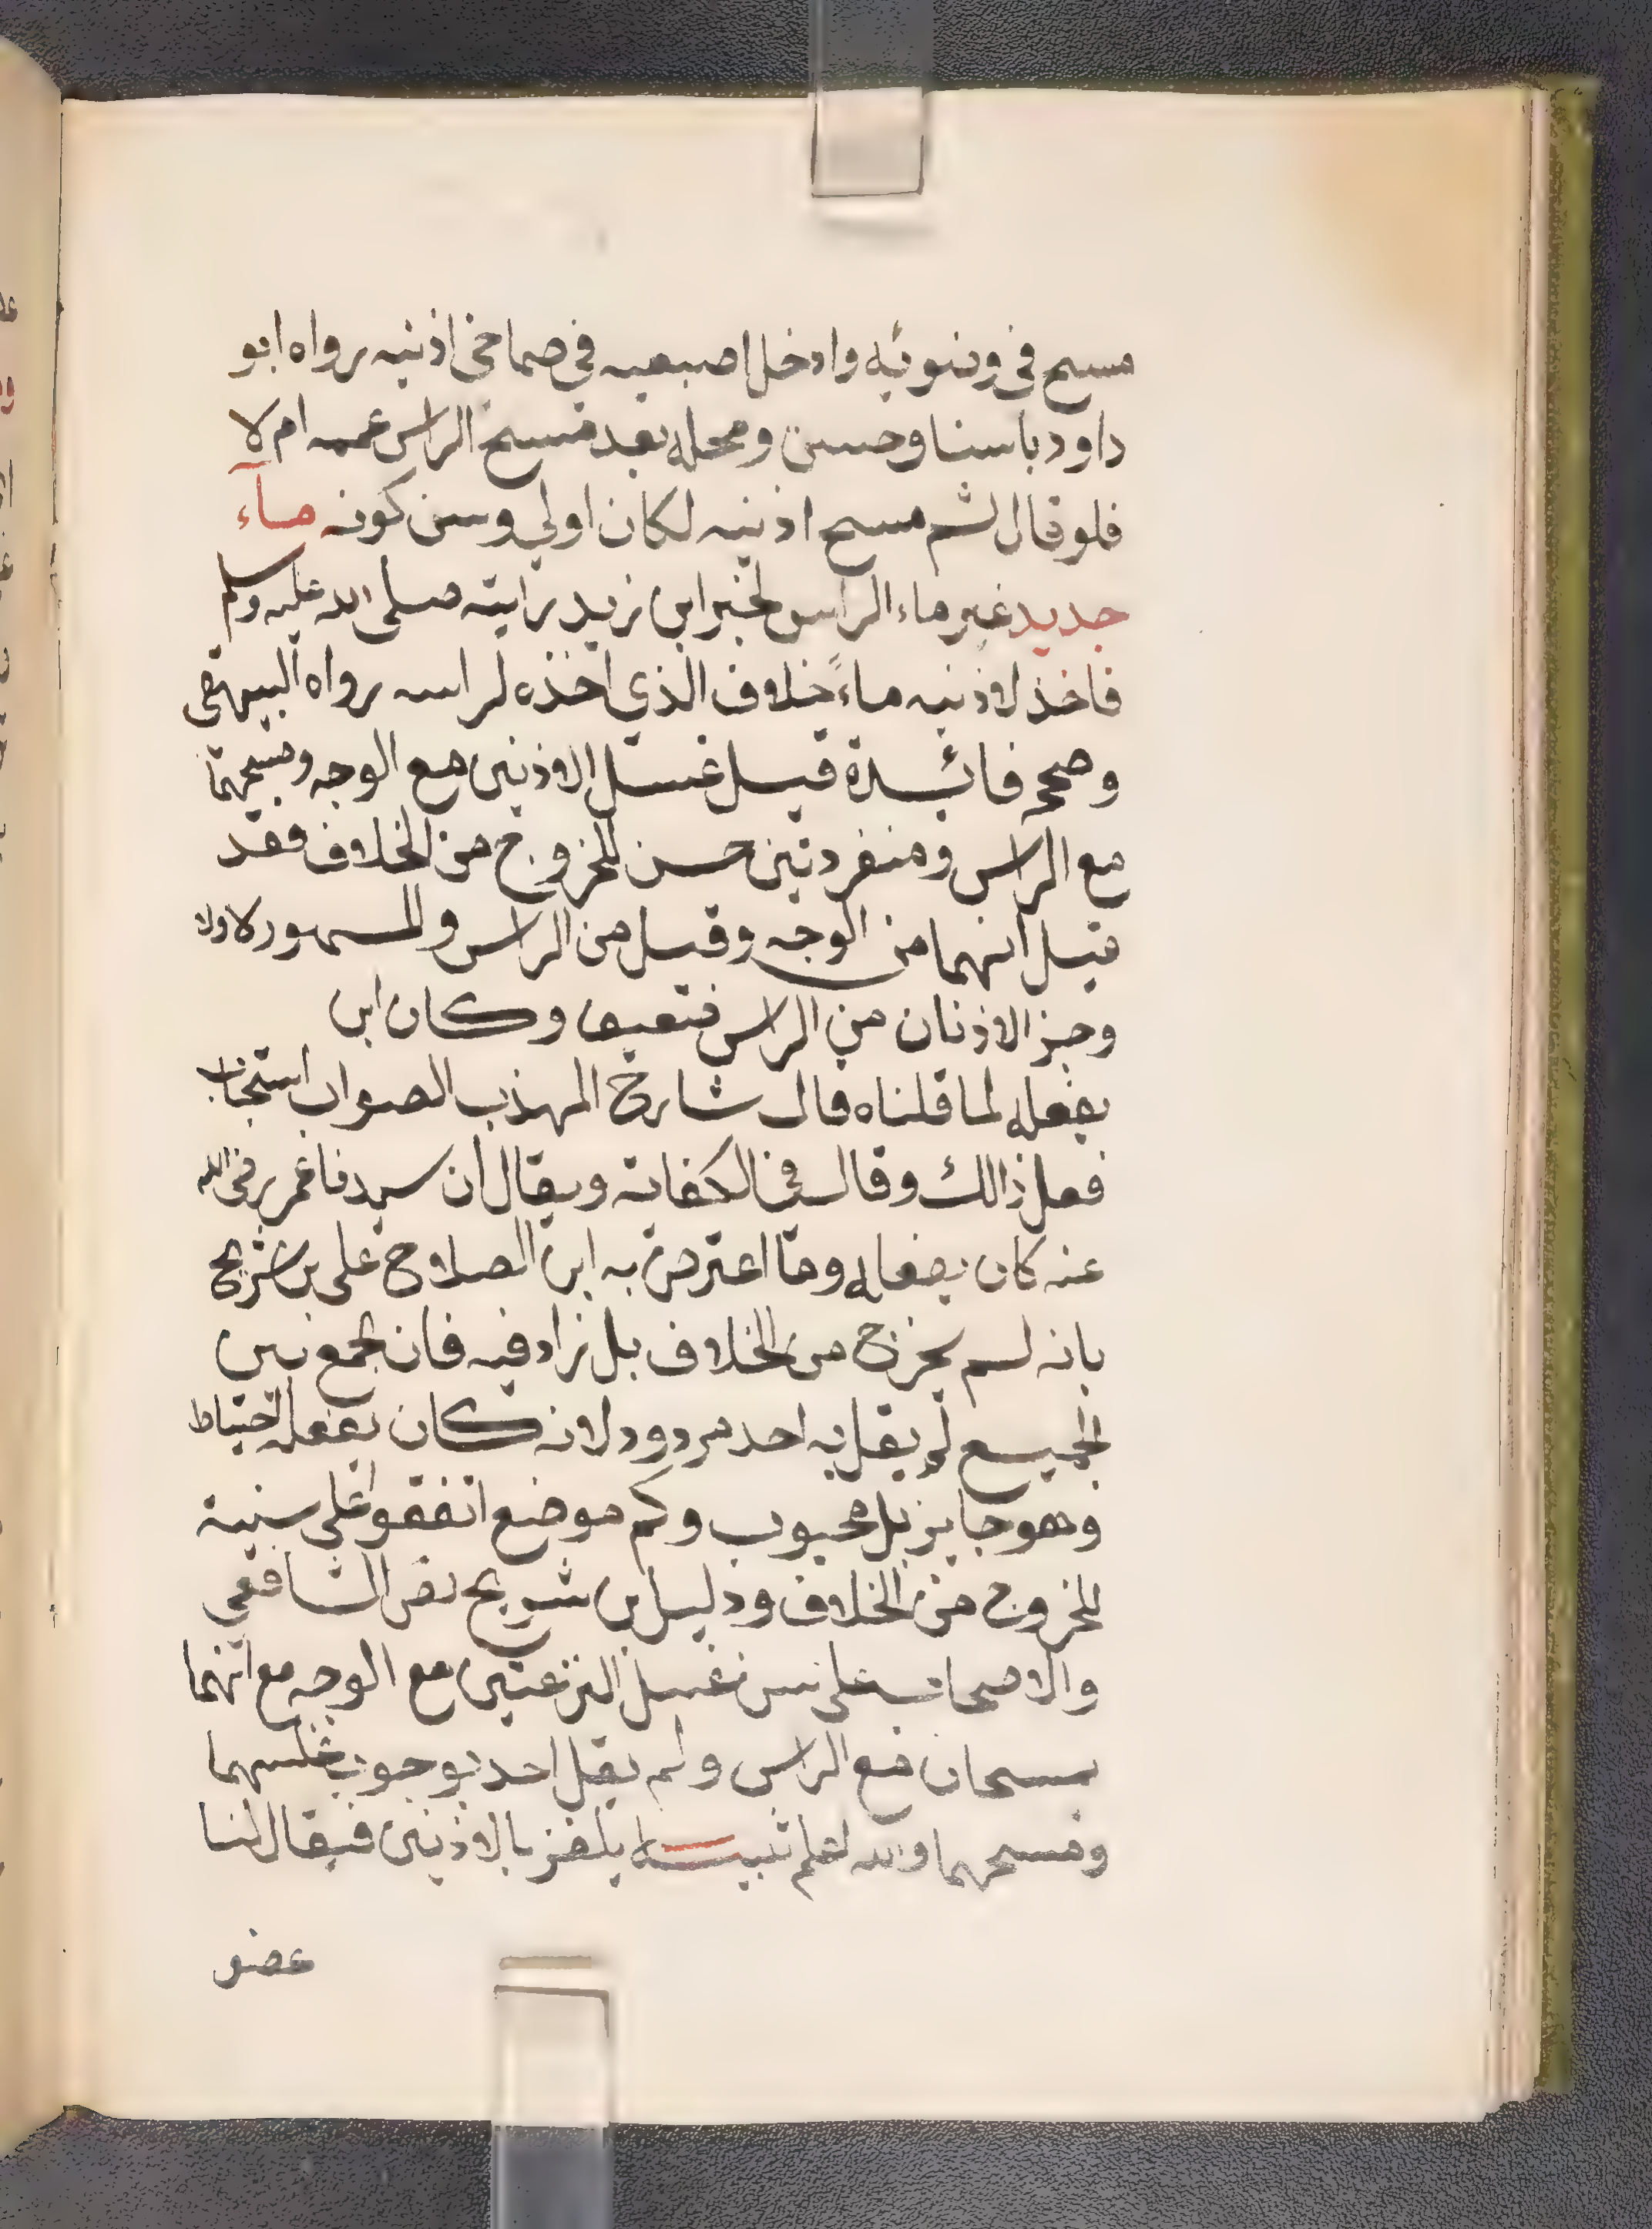 مسح في وضوئه وادخل اصبعيه في صماخي اذنيه رواه ابو
داود باسناد حسن ومحله بعد مسح الراس عمه ام لا
فلو قال ثم مسح اذنيه لكان اولي وسن كونه ماء
جديد غير ماء الراس لخبر ابن زيد رايته صلى الله عليه وسلم
فاخذ لاذنيه ماءً خلاف الذي اخذه لراسه رواه البيهقي
وصححه فائدة قيل غسل الاذنين مع الوجه ومسحهما
مع الراس ومنفردتين حسن للخروج من الخلاف فقد
قيل انهما من الوجه وقيل من الراس والمشهور لا ولا
وخبر الاذنان من الراس ضعيف وكان ابن
يفعله لما قلناه قال شارح المهذب الصواب استحباب
فعل ذالك وقال في الكفاية ويقال ان سيدنا عمر رضي الله
عنه كان يفعله وما اعترض به ابن الصلاح على بن شريح
بانه لم يخرج من الخلاف بل زاد فيه فان الجمع بين
الجميع لم يقل به احد مردود لانه كان يفعله احتياط
وهو جايز بل محبوب وكم موضع اتفقوا على سنية
للخروج من الخلاف ودليل بن شريح نص الشافعي
والاصحاب على سن غسل النزعتين مع الوجه مع انهما
يمسحان مع الراس ولم يقل احد بوجوب غسلهما
ومسحهما والله اعلم تنبيه يلغز بالاذنين فيقال لنا
عضو